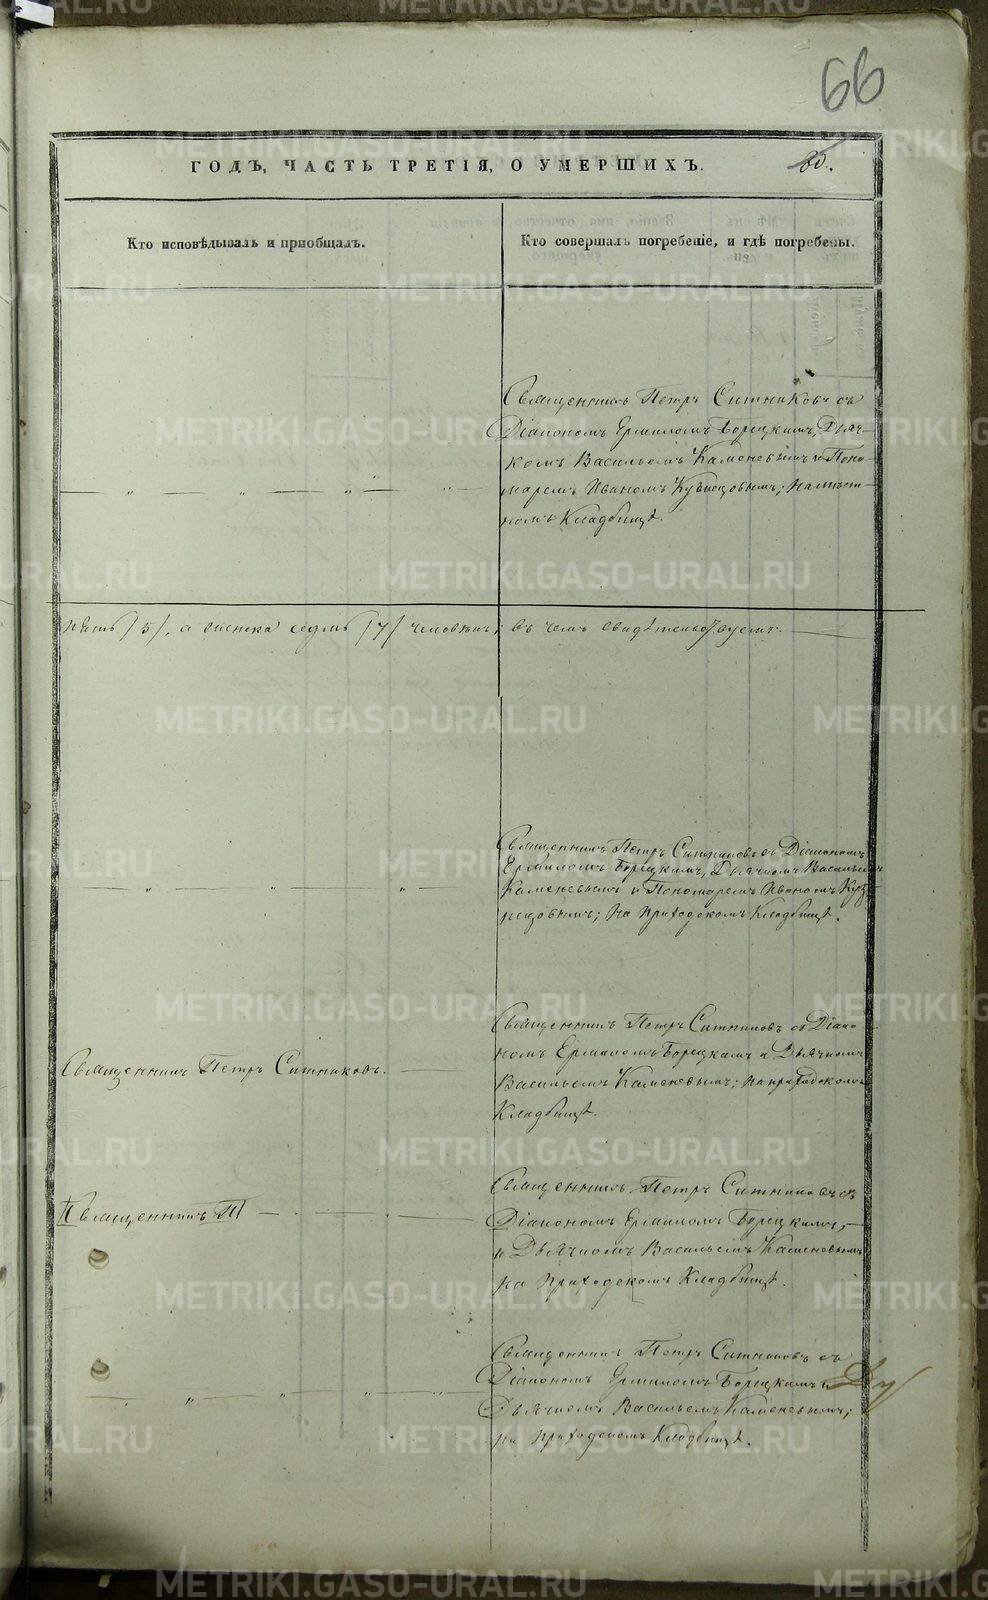 66
ГОДЪ, ЧАСТЬ ТРЕТІЯ, О УМЕРШИХЪ.
Кто исповѣдывалъ и пріобщалъ.
Кто совершалъ погребеніе, и гдѣ погребены.
Священникъ Петръ Ситниковъ съ
Діакономъ Ермиломъ Борецкимъ, Дьяч-
комъ Васильемъ Каменевымъ и Поно-
маремъ Иваномъ Кузнецовымъ; на мѣст-
номъ Кладбищѣ.
пять /5/, а женска седмь /7/ человѣкъ; въ чемъ свидѣтельствуемъ.
Священникъ Петръ Ситниковъ съ Діакономъ
Ермиломъ Борецкимъ, Дьячкомъ Васильемъ
Каменевымъ и Пономаремъ Иваномъ Куз-
нецовымъ; на приходскомъ Кладбищѣ.
Священникъ Петръ Ситниковъ.
Священникъ Петръ Ситниковъ съ Діако-
номъ Ермиломъ Борецкимъ и Дьячкомъ
Васильемъ Каменевымъ; на приходскомъ
Кладбищѣ.
Священникъ П
Священникъ Петръ Ситниковъ съ
Діакономъ Ермиломъ Борецкимъ,
и Дьячкомъ Васильемъ Каменевымъ
на приходскомъ Кладбищѣ.
Священникъ Петръ Ситниковъ съ
Діакономъ Ермиломъ Борецкимъ и
Дьячкомъ Васильемъ Каменевымъ;
на приходскомъ Кладбищѣ.
METRIKI.GASO-URAL.RU